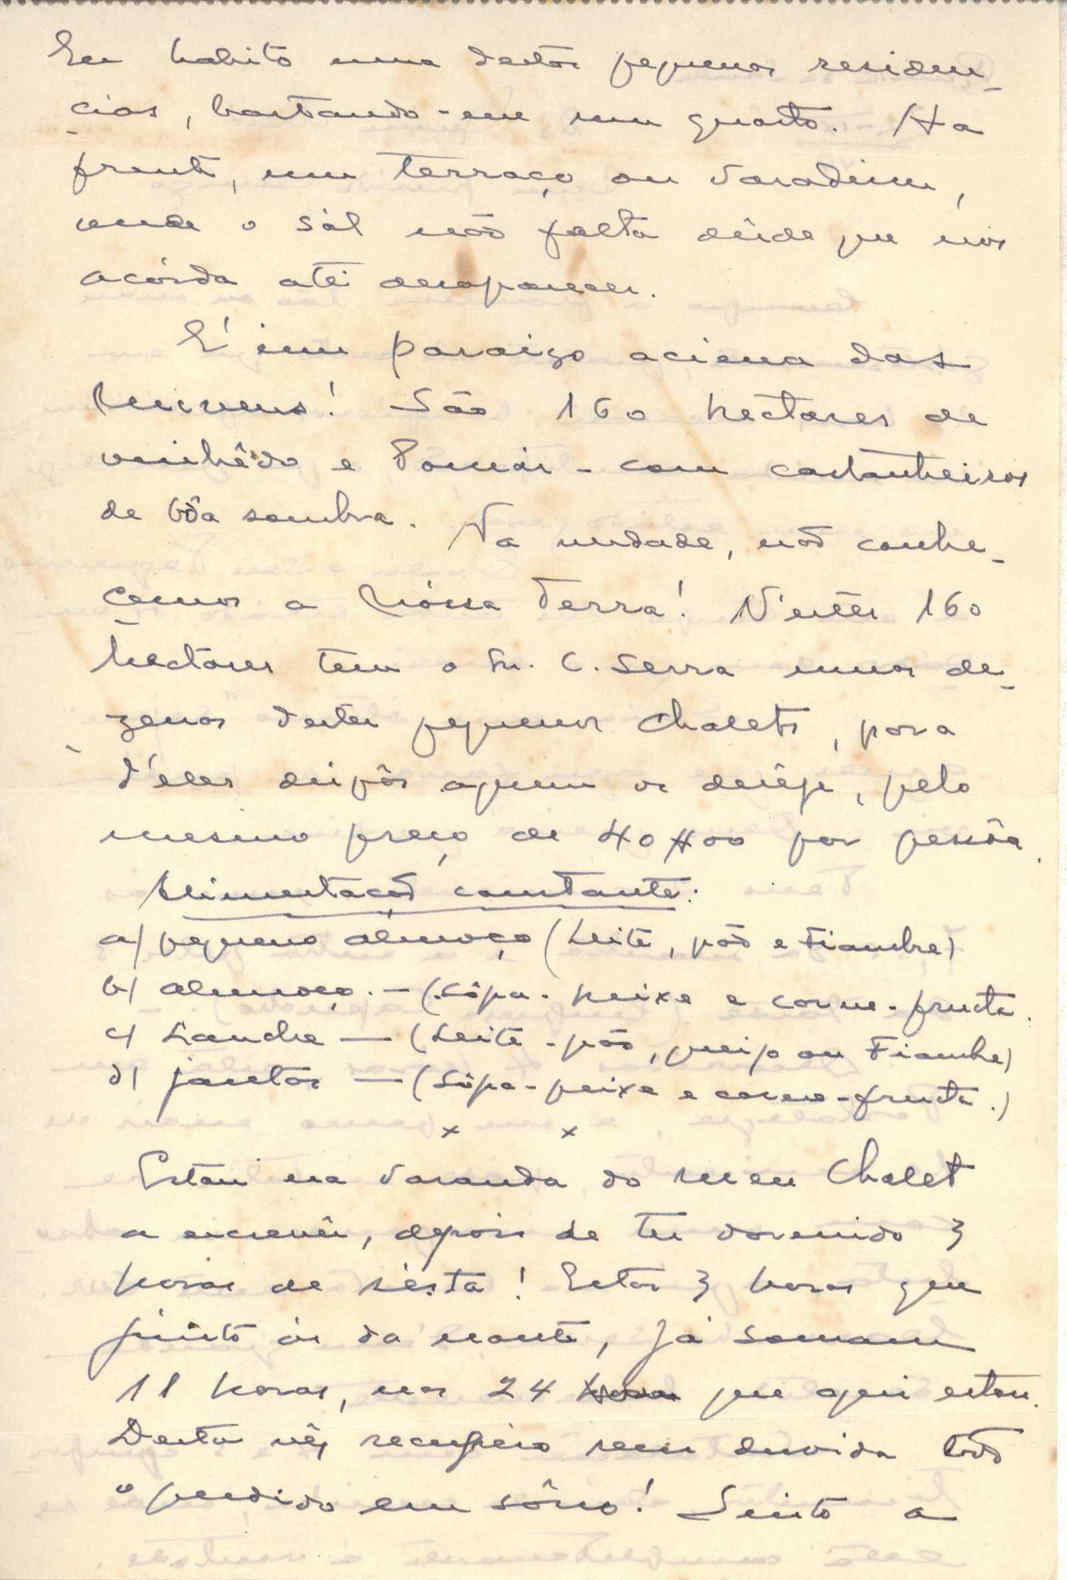 Eu habito uma destas pequenas residen-
cias, bastando-me um quarto. Há
frente, um terraço ou varadim,
onde o sól não falta dêsde que nos
acórda até desaparecer.
E' um paraizo acima das
Nuvens! São 160 hectares de
vinhêdo e Pomár - com castanheiros
de bôa sombra. Na verdade, não conhe-
cemos a Nóssa Terra! N'estes 160
hectares tem o Snr. C. Serra umas de-
zenas destes pequenos Chalets, para
d'eles dispôr aquem os deseje, pelo
mesmo preço de 40$00 por pessôa.
Alimentação constante:
a) pequeno almoço (Leite, pão e Fiambre)
b) almoço. — (Sôpa - peixe e carne - fructa.
c) Lanche — (Leite - pão, queijo ou Fiambre)
d) jantar — (Sôpa - peixe e carne - fructa.)
x x
Estou na varanda do meu Chalet
a escrevêr, depois de ter dormido 3
horas de sésta! Estas 3 horas que
junto ás da noute, já somam
11 horas, nas 24 que aqui estou.
Desta vês recupero sem duvida todo
o perdido em sôno! Sinto a